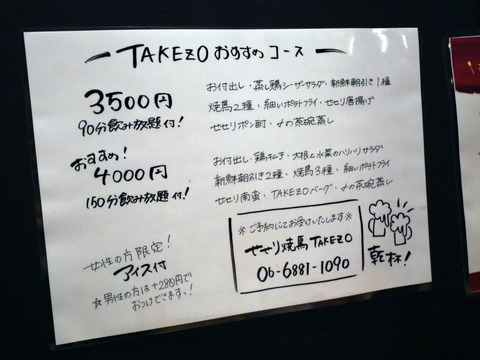 TAKEZO おすすめ コース
3500円
90分飲み放題付!
お付出し・蒸し鶏シーザーサラダ・新鮮朝引き1種
焼鳥2種・細いポテトフライ・せせり唐揚げ
せせりポン酢・〆の茶碗蒸し
おすすめ!
4000円
150分飲み放題付!
お付出し・鶏キムチ・大根と水菜のハリハリサラダ
新鮮朝引き2種・焼鳥3種・細いポトフライ
せせり南蛮・TAKEZOバーグ・〆の茶碗蒸し
女性の方限定!
アイス付
☆男性の方は+280円で
おつけできますっ!
※ご予約にてお受けいたします※
せせり焼鳥 TAKEZO
06-6881-1090
乾杯!